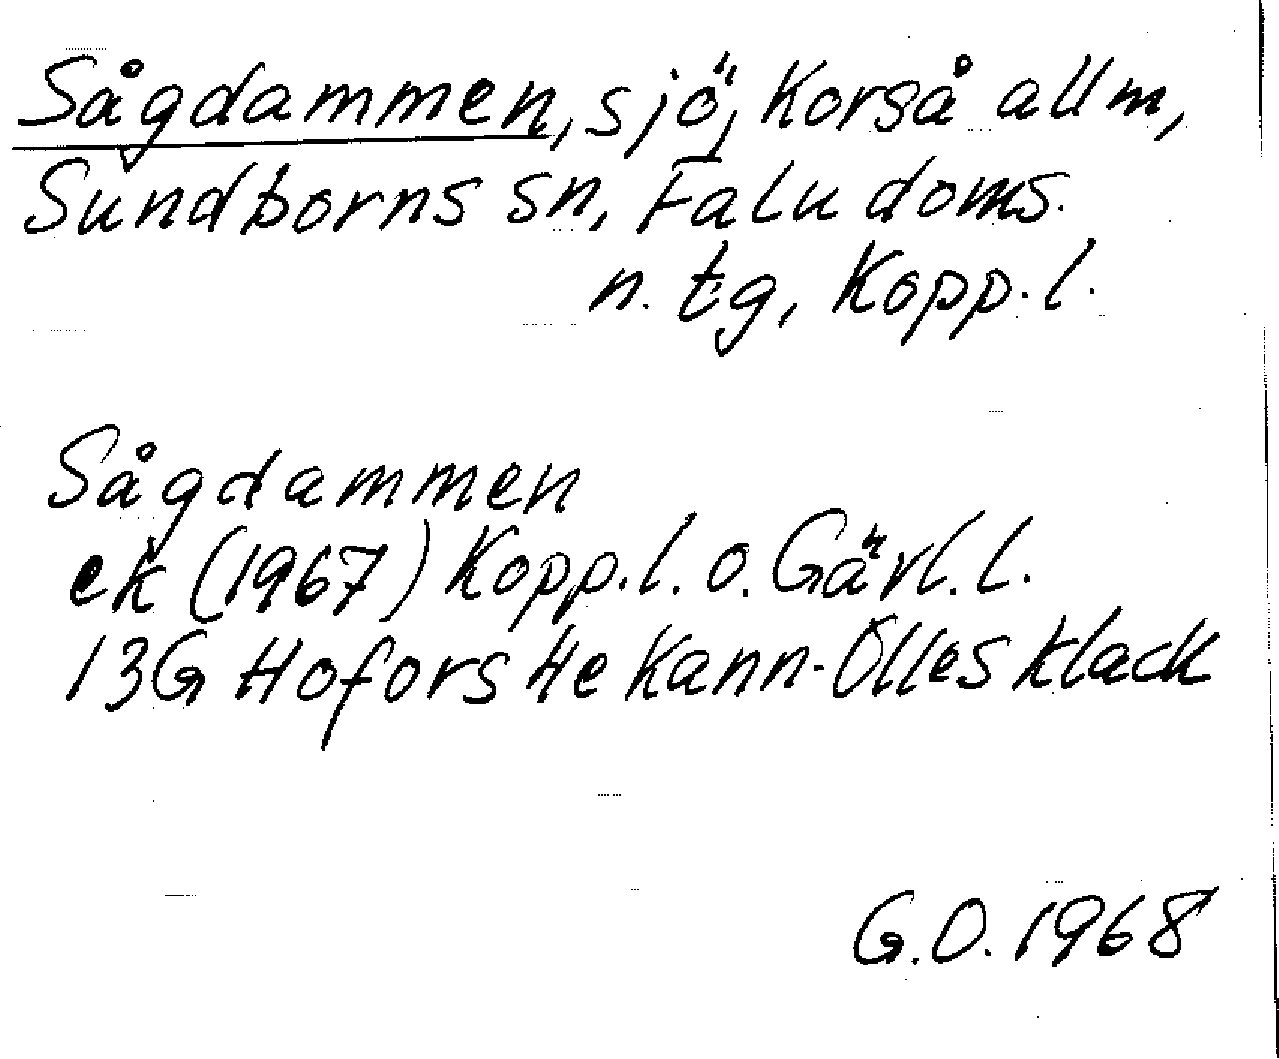 Sågdammen, sjö, Korså allm,
Sundborns sn, Falu doms.
n. tg, Kopp. l.
Sågdammen
ek (1967) Kopp. l. o. Gävl. l.
13G Hofors 4e Kann-Olles klack
G.O. 1968